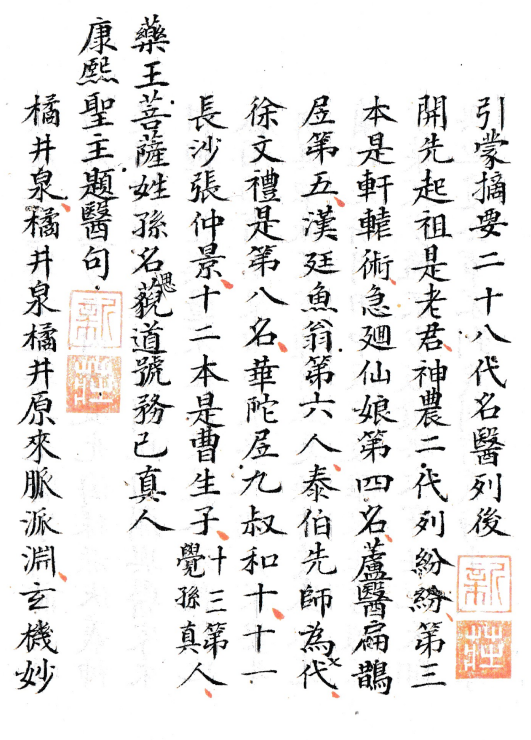 引蒙摘要二十八代名醫列後
開先起祖是老君神農二代列紛紛第三
本是軒轅術急廻仙娘第四名蘆醫扁鵲
居第五漢廷魚翁第六人泰伯先師為代
徐文禮是第八名華陀居九叔和十十一
長沙張仲景十二本是曹生子十三第
覺孫真人
藥王菩薩姓孫名藐道號務已真人
康熙聖主題醫句
橘井泉橘井泉橘井原來脈派淵玄機妙
新莊
新莊